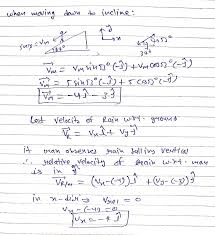 when moving down to incline:
53°
V⃗m = Vm sin53°(-ĵ) + Vm cos53°(-î)
V⃗m = 5 sin53°(-ĵ) + 5 cos53°(-î)
V⃗m = -4ĵ - 3î
Let velocity of Rain w.r.t. ground
V⃗R = Vx î + Vy ĵ
if man observes rain falling vertical
∴ relative velocity of Rain w.r.t. man
is in ĵ
V⃗R/m = (Vx-(-4)) î + (Vy-(-3)) ĵ
in x-dir⇒ Vrel = 0
Vx-(-4) = 0
Vx = -4 î